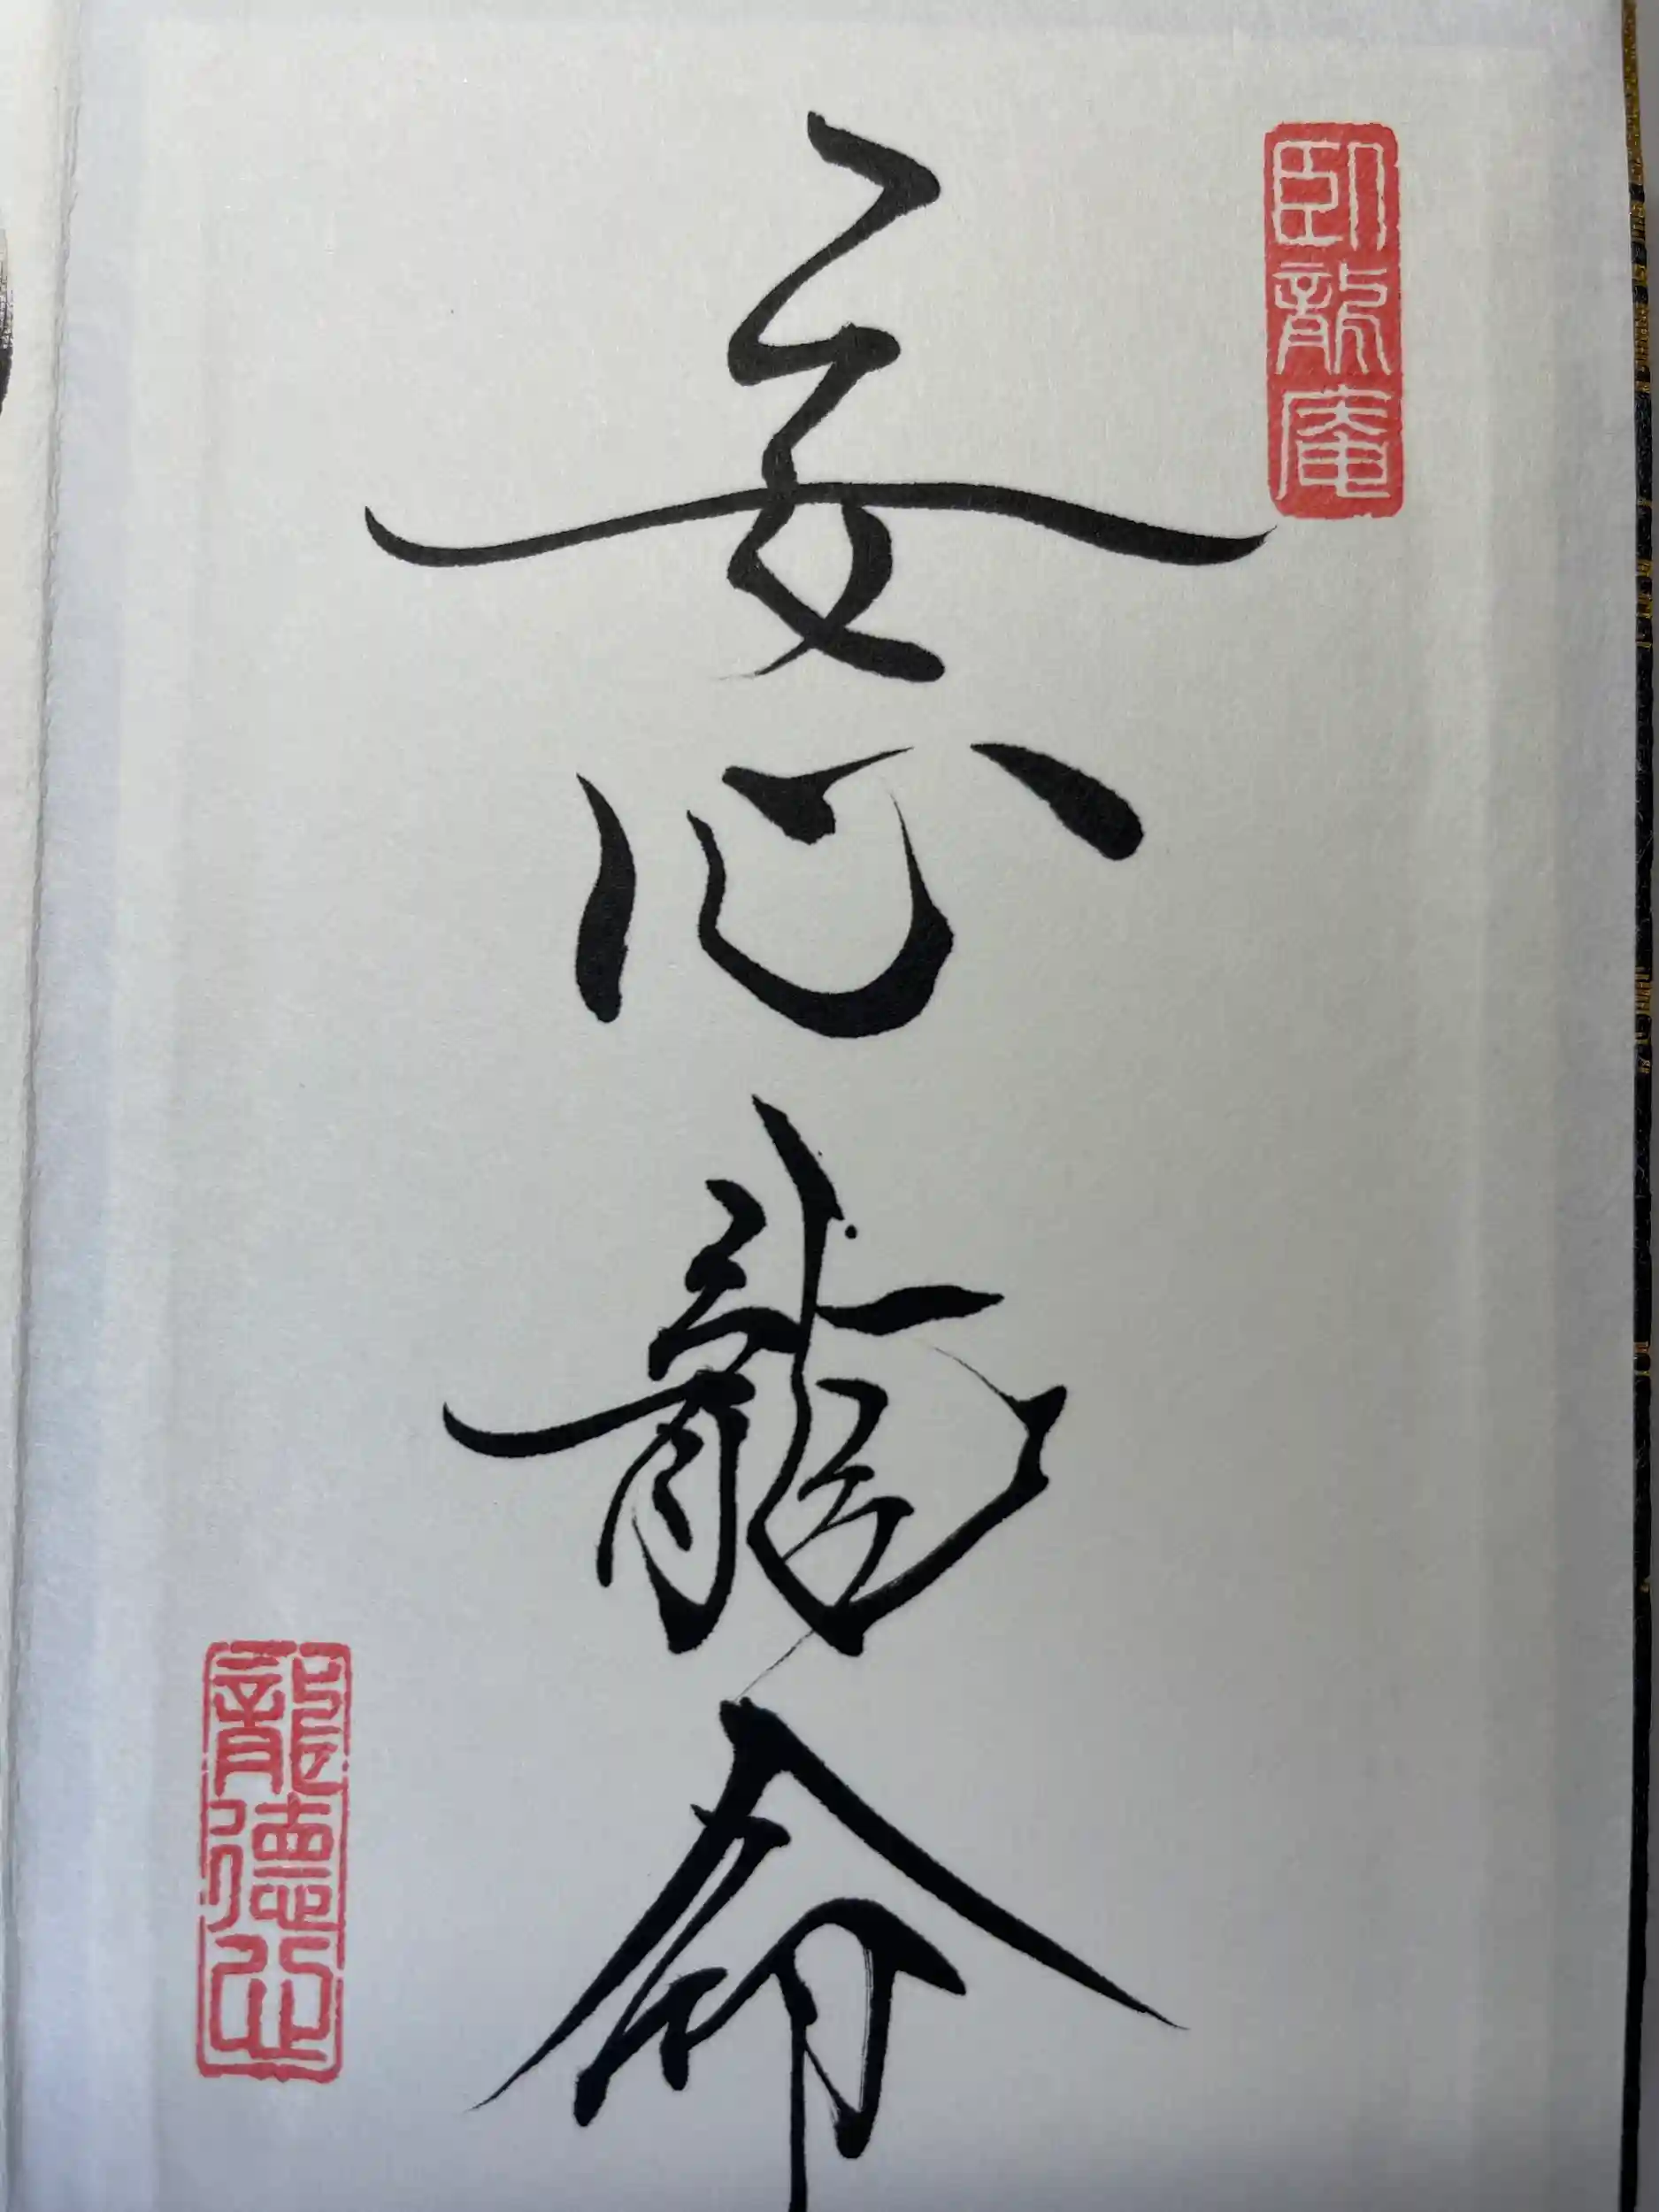 臥龍庵
安心龍命
龍德